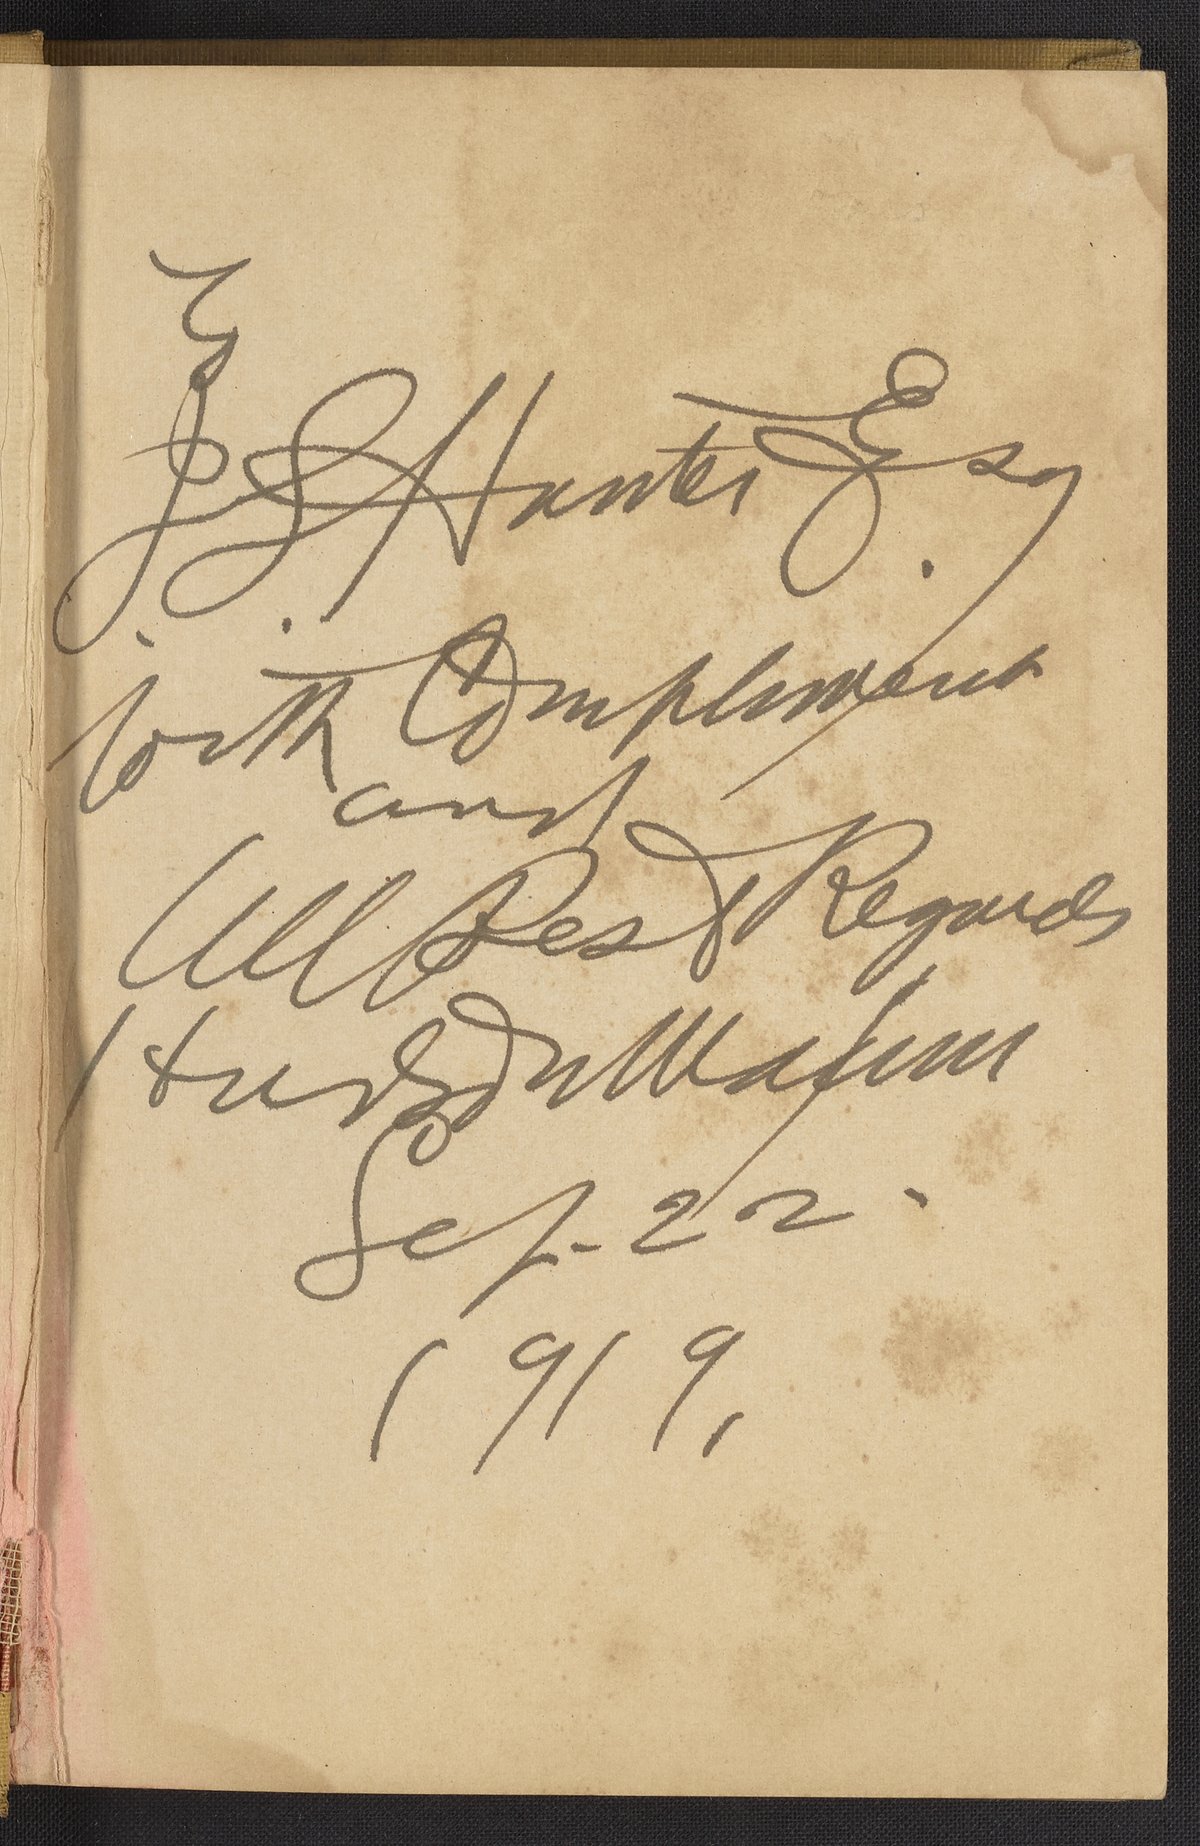 To
J. S. Hunter Esq.
with Compliment
and
All Best Regards
Hudson Maxim
Sep. 22.
1919,